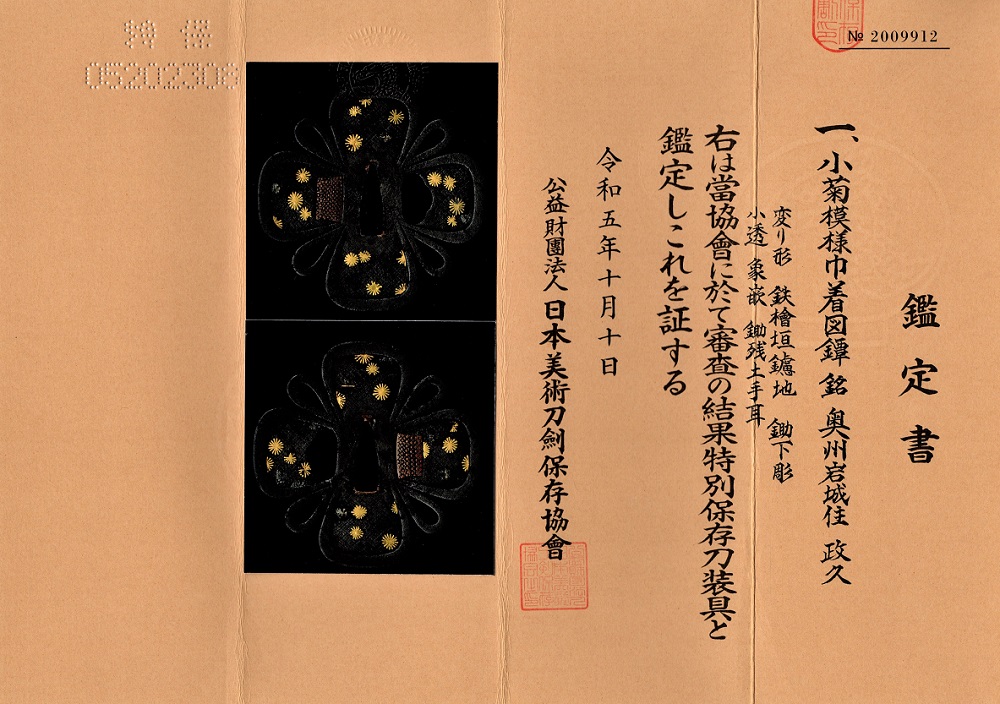 № 2009912
鑑定書
一、小菊模様巾着図鐔 銘 奥州岩城住 政久
変り形 鉄檜垣鑢地 鋤下彫
小透 象嵌 鋤残土手耳
右は當協會に於て審査の結果特別保存刀装具と
鑑定しこれを証する
令和五年十月十日
公益財團法人 日本美術刀劍保存協會
05202308